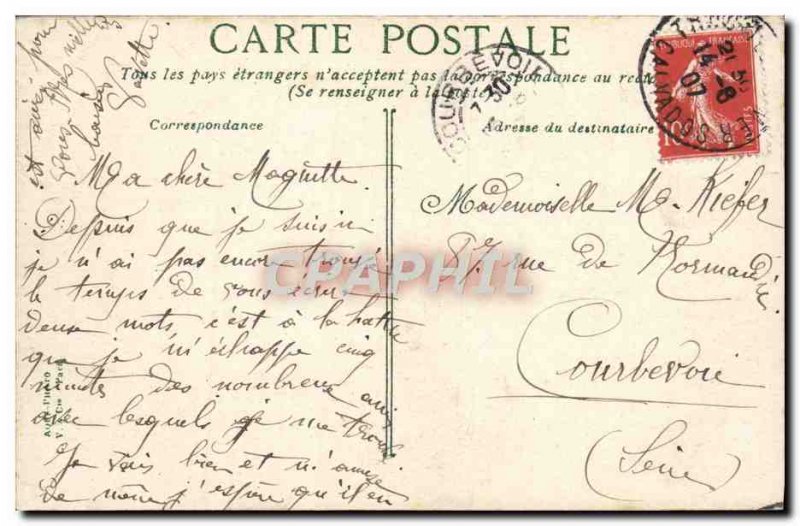 CARTE POSTALE
Tous les pays étrangers n'acceptent pas la correspondance au recto
(Se renseigner à la poste)
Correspondance
Adresse du destinataire
Ma chère Maguitte
Depuis que je suis ici
je n'ai pas encore trouvé
le temps de vous écrire
deux mots, c'est à la hâte
que je m'échappe cinq
minutes des nombreux amis
avec lesquels je me trouve
Je vais bien et m'amuse
de même j'espère qu'il en
est ainsi pour
vous. Mes meilleurs
baisers
Mademoiselle M. Kiefer
87 rue de Normandie
Courbevoie
(Seine)
COURBEVOIE
7 30
CALVADOS
14 - 8
07
10
CPARPHIL